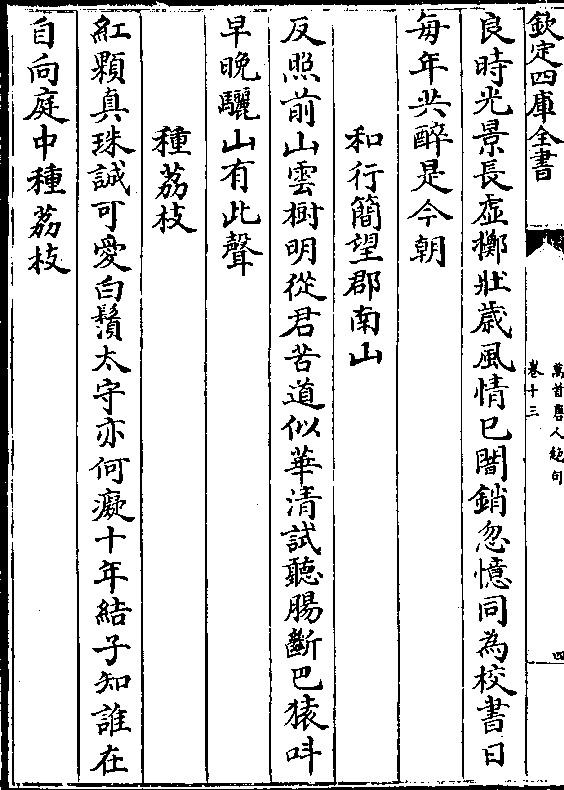 欽定四庫全書
萬首唐人絕句
卷十三
四
良時光景長虛擲壯歲風情已闇銷忽憶同為校書日
每年共醉是今朝
和行簡望郡南山
反照前山雲樹明從君苦道似華清試聽腸斷巴猿呌
早晚驪山有此聲
種荔枝
紅顆真珠誠可愛白鬚太守亦何癡十年結子知誰在
自向庭中種荔枝